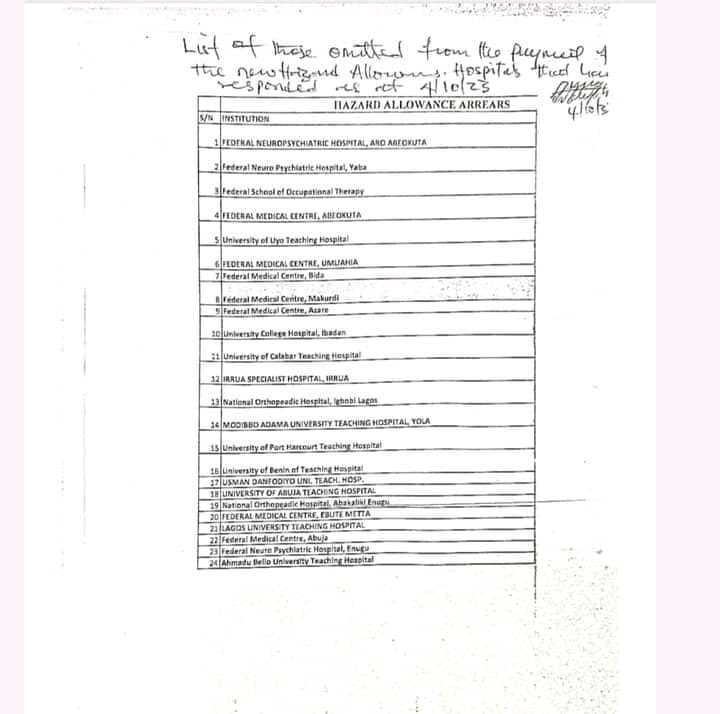 List of those omitted from the payment of
the new Hazard Allowances. Hospitals that have
responded as at 4/10/23
4/10/23
HAZARD ALLOWANCE ARREARS
S/N INSTITUTION
1 FEDERAL NEUROPSYCHIATRIC HOSPITAL, ARO ABEOKUTA
2 Federal Neuro Psychiatric Hospital, Yaba
3 Federal School of Occupational Therapy
4 FEDERAL MEDICAL CENTRE, ABEOKUTA
5 University of Uyo Teaching Hospital
6 FEDERAL MEDICAL CENTRE, UMUAHIA
7 Federal Medical Centre, Bida
8 Federal Medical Centre, Makurdi
9 Federal Medical Centre, Azare
10 University College Hospital, Ibadan
11 University of Calabar Teaching Hospital
12 IRRUA SPECIALIST HOSPITAL, IRRUA
13 National Orthopeadic Hospital, Igbobi Lagos
14 MODIBBO ADAMA UNIVERSITY TEACHING HOSPITAL, YOLA
15 University of Port Harcourt Teaching Hospital
16 University of Benin of Teaching Hospital
17 USMAN DANFODIYO UNI. TEACH. HOSP.
18 UNIVERSITY OF ABUJA TEACHING HOSPITAL
19 National Orthopeadic Hospital, Abakaliki Enugu
20 FEDERAL MEDICAL CENTRE, EBUTE METTA
21 LAGOS UNIVERSITY TEACHING HOSPITAL
22 Federal Medical Centre, Abuja
23 Federal Neuro Psychiatric Hospital, Enugu
24 Ahmadu Bello University Teaching Hospital